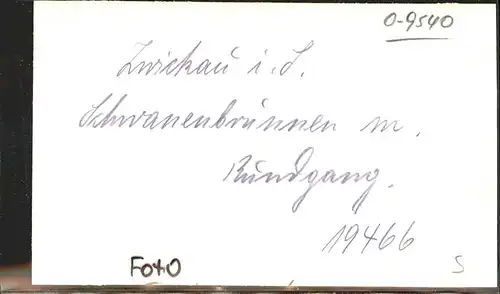 0-9540
Zwickau i. S.
Schwanenbrunnen m.
Rundgang.
19466
Foto
S